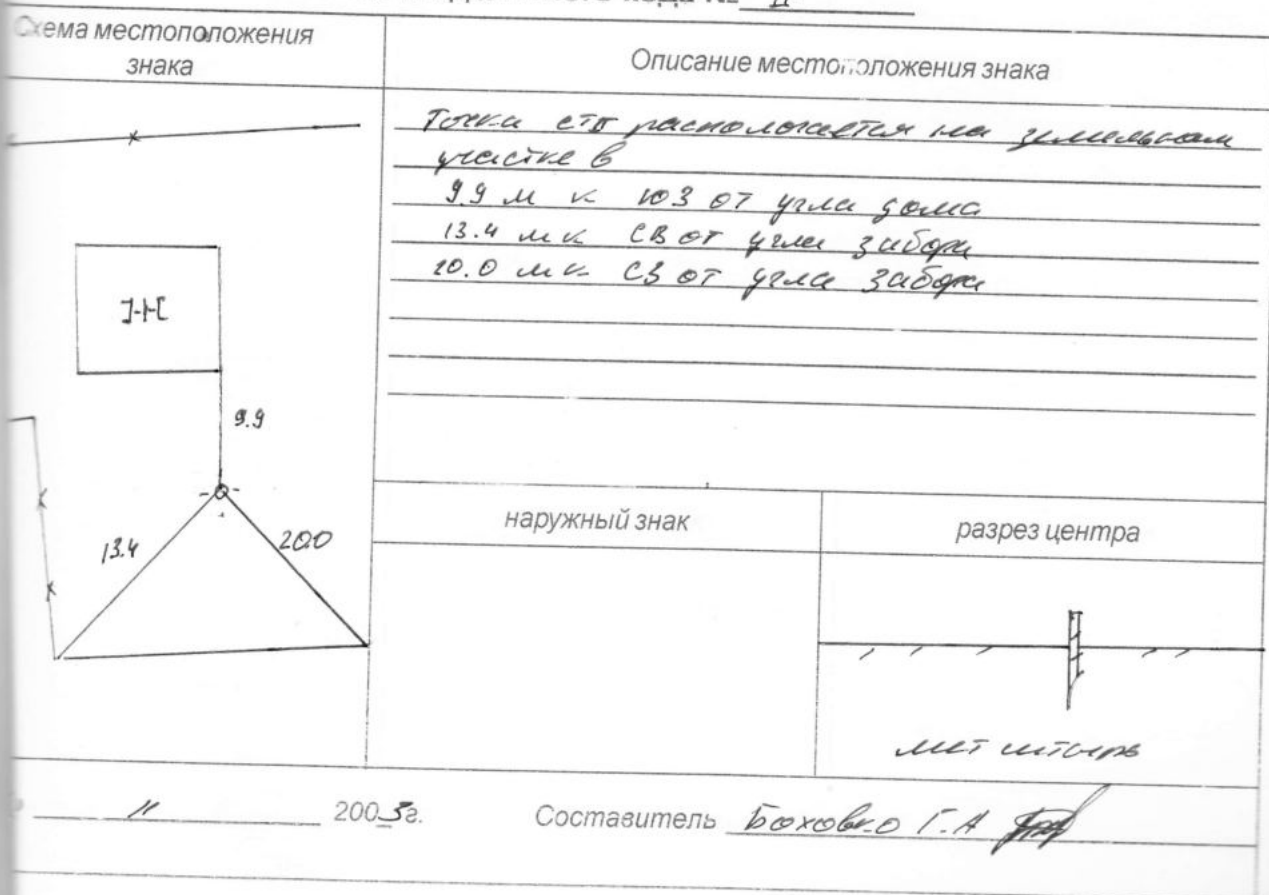 Схема местоположения
знака
Описание местоположения знака
Точка ст II распологается на земельном
участке в
9.9 м к ЮЗ от угла дома
13.4 м к СВ от угла забора
20.0 м к СЗ от угла забора
9.9
13.4
20.0
наружный знак
разрез центра
мет штырь
11 2003г.
Составитель Боховко Г.А